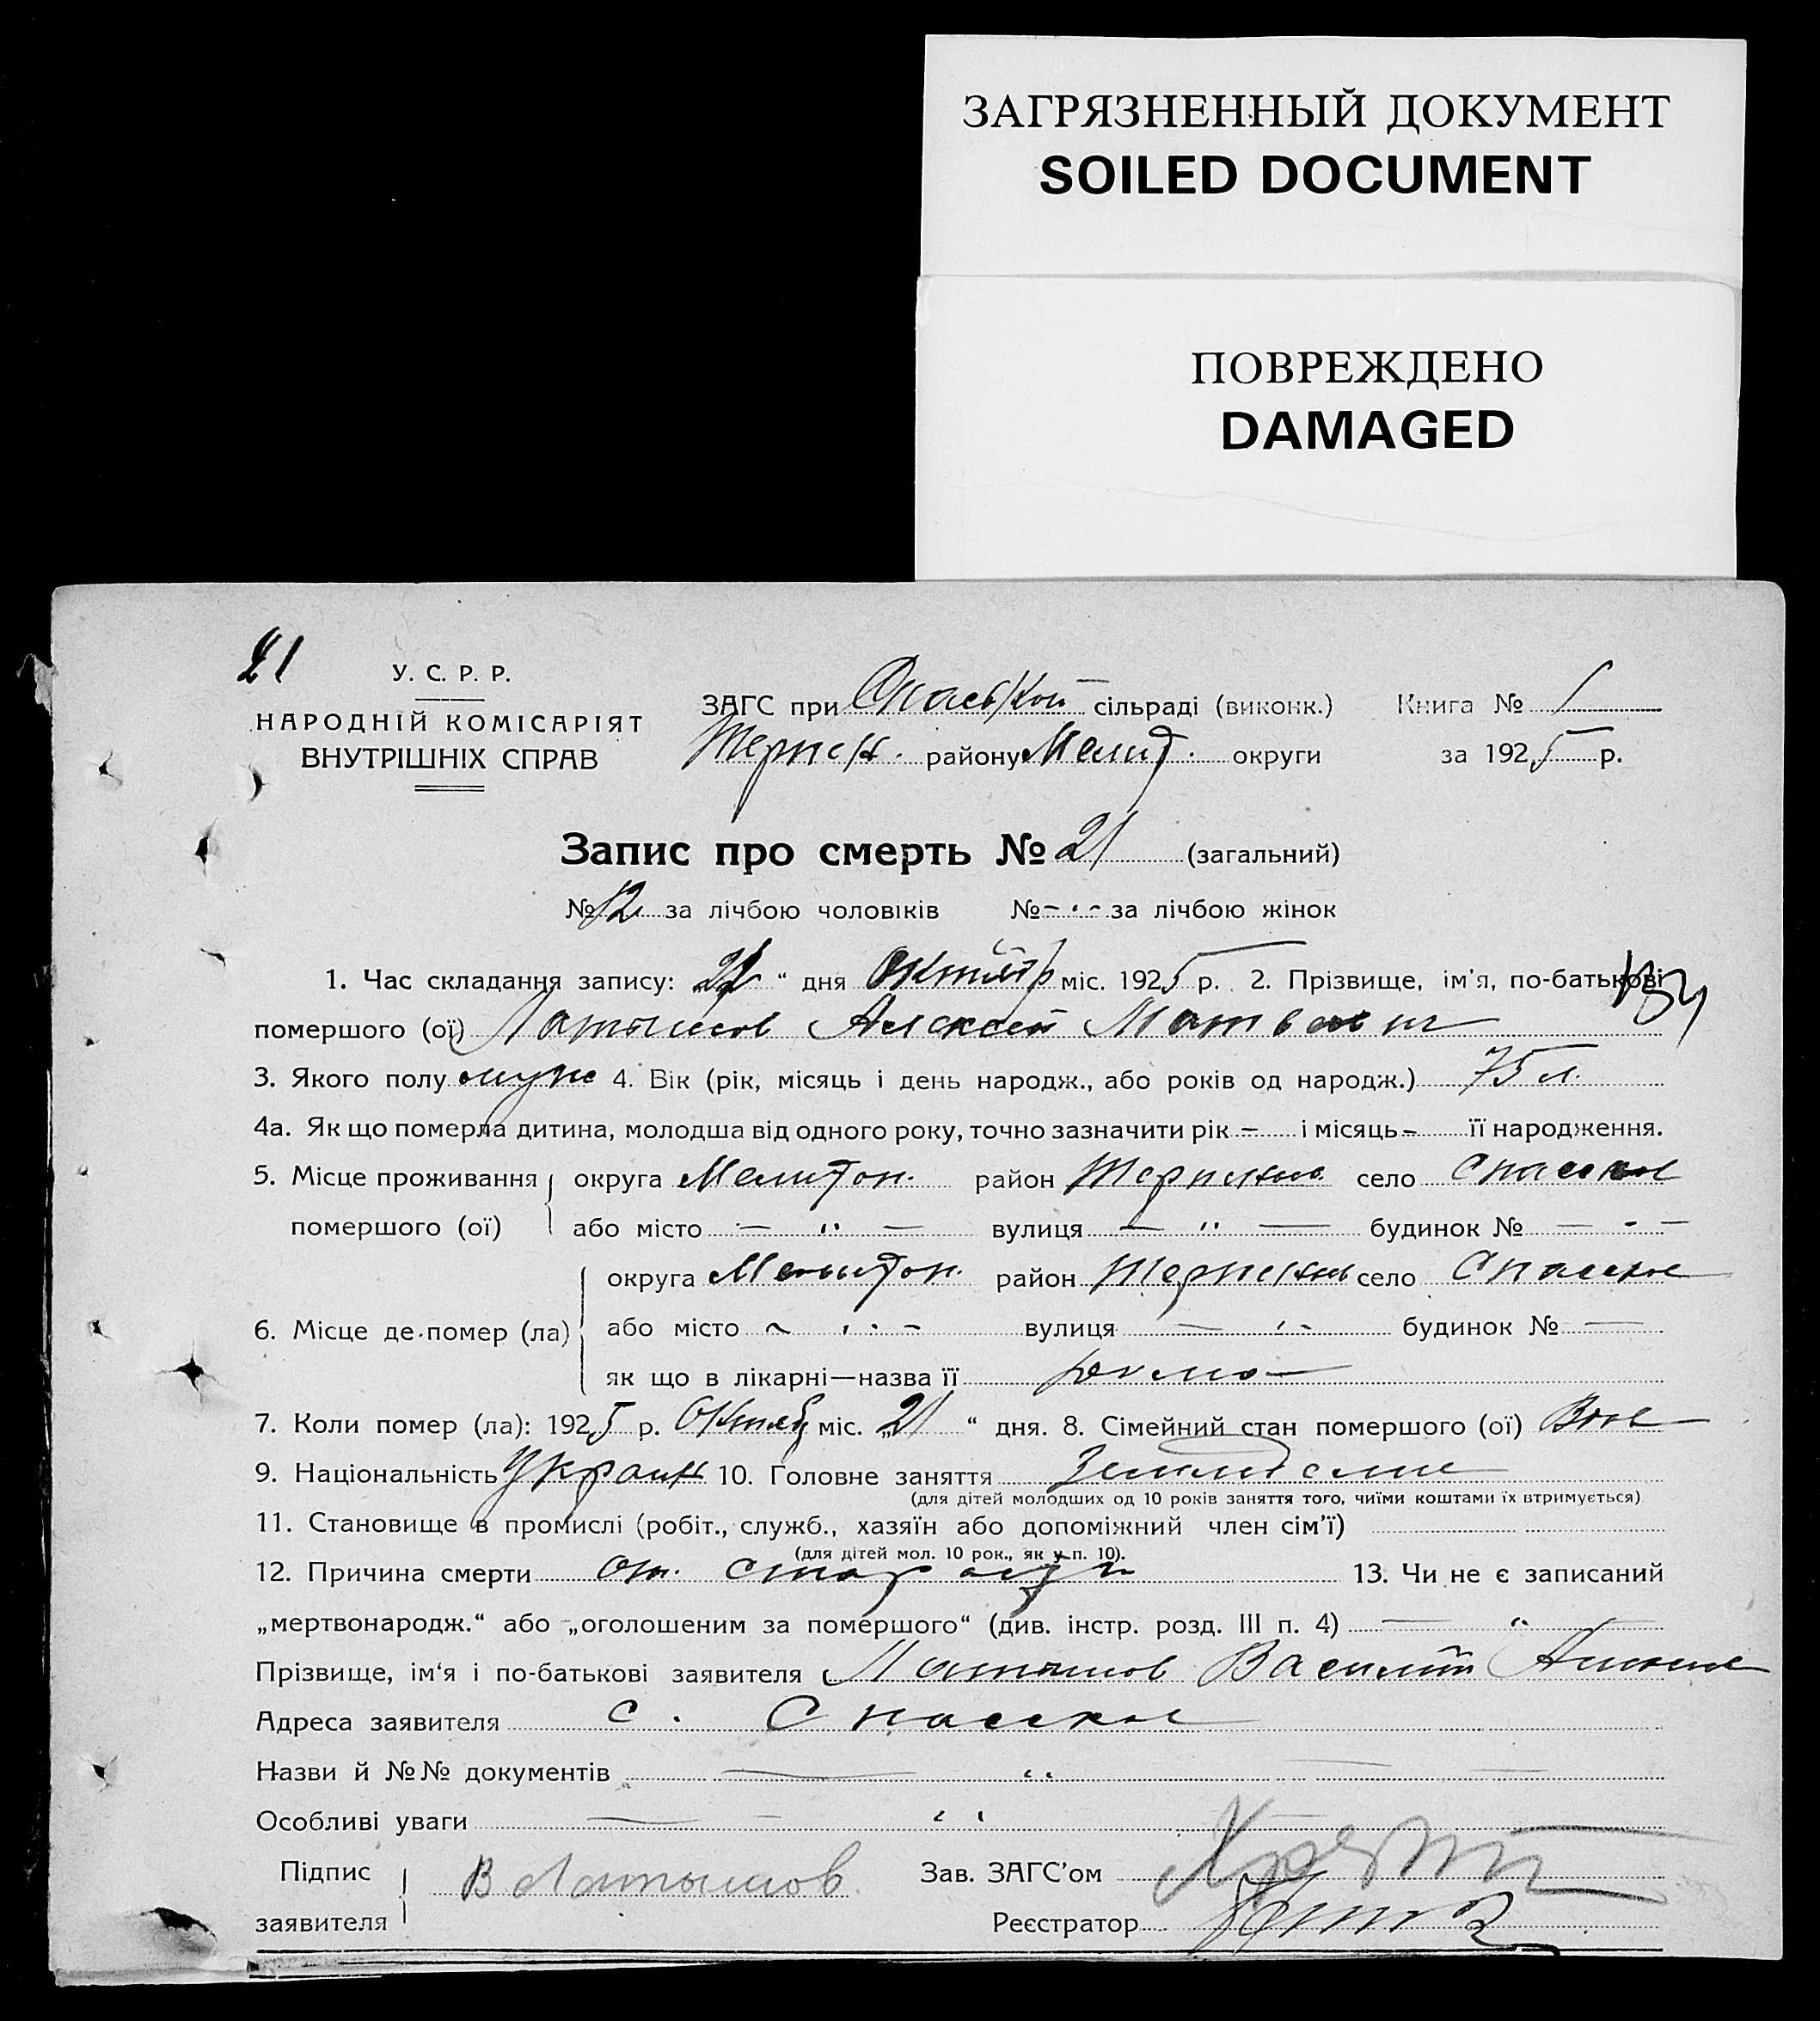 ЗАГРЯЗНЕННЫЙ ДОКУМЕНТ
SOILED DOCUMENT
ПОВРЕЖДЕНО
DAMAGED
21
У. С. Р. Р.
НАРОДНІЙ КОМІСАРІЯТ
ВНУТРІШНІХ СПРАВ
ЗАГС при Спаській сільраді (виконк.) Книга № 1
району Мелит. округи за 1925 р.
Запис про смерть № 21 (загальний)
№ 12 за лічбою чоловіків № - · - за лічбою жінок
1. Час складання запису: “ дня Октябр міс. 1925 р. 2. Прізвище, ім'я, по-батькові
помершого (ої) Латышов Алексей Матвеевич
3. Якого полу муж 4. Вік (рік, місяць і день народж., або років од народж.) 75 л.
4а. Як що померла дитина, молодша від одного року, точно зазначити рік – і місяць – її народження.
5. Місце проживання округа Мелитоп. район село Спасское
помершого (ої) або місто — " — вулиця — " — будинок № — - —
округа Мелитоп. район село Спасское
6. Місце де помер (ла) або місто вулиця будинок № —
як що в лікарні—назва її дома
7. Коли помер (ла): 1925 р. Октяб міс. „21 “ дня. 8. Сімейний стан помершого (ої)
9. Національність Украин 10. Головне заняття
(для дітей молодших од 10 років заняття того, чиїми коштами їх втримується)
11. Становище в промислі (робіт., служб., хазяїн або допоміжний член сім'ї)
(для дітей мол. 10 рок., як у п. 10).
12. Причина смерти от старости 13. Чи не є записаний
„мертвонародж.“ або „оголошеним за помершого“ (див. інстр. розд. III п. 4) — "
Прізвище, ім'я і по-батькові заявителя Латышов Василий
Адреса заявителя с. Спасское
Назви й №№ документів — "
Особливі уваги — "
Підпис заявителя В Латышов Зав. ЗАГС'ом
Реєстратор